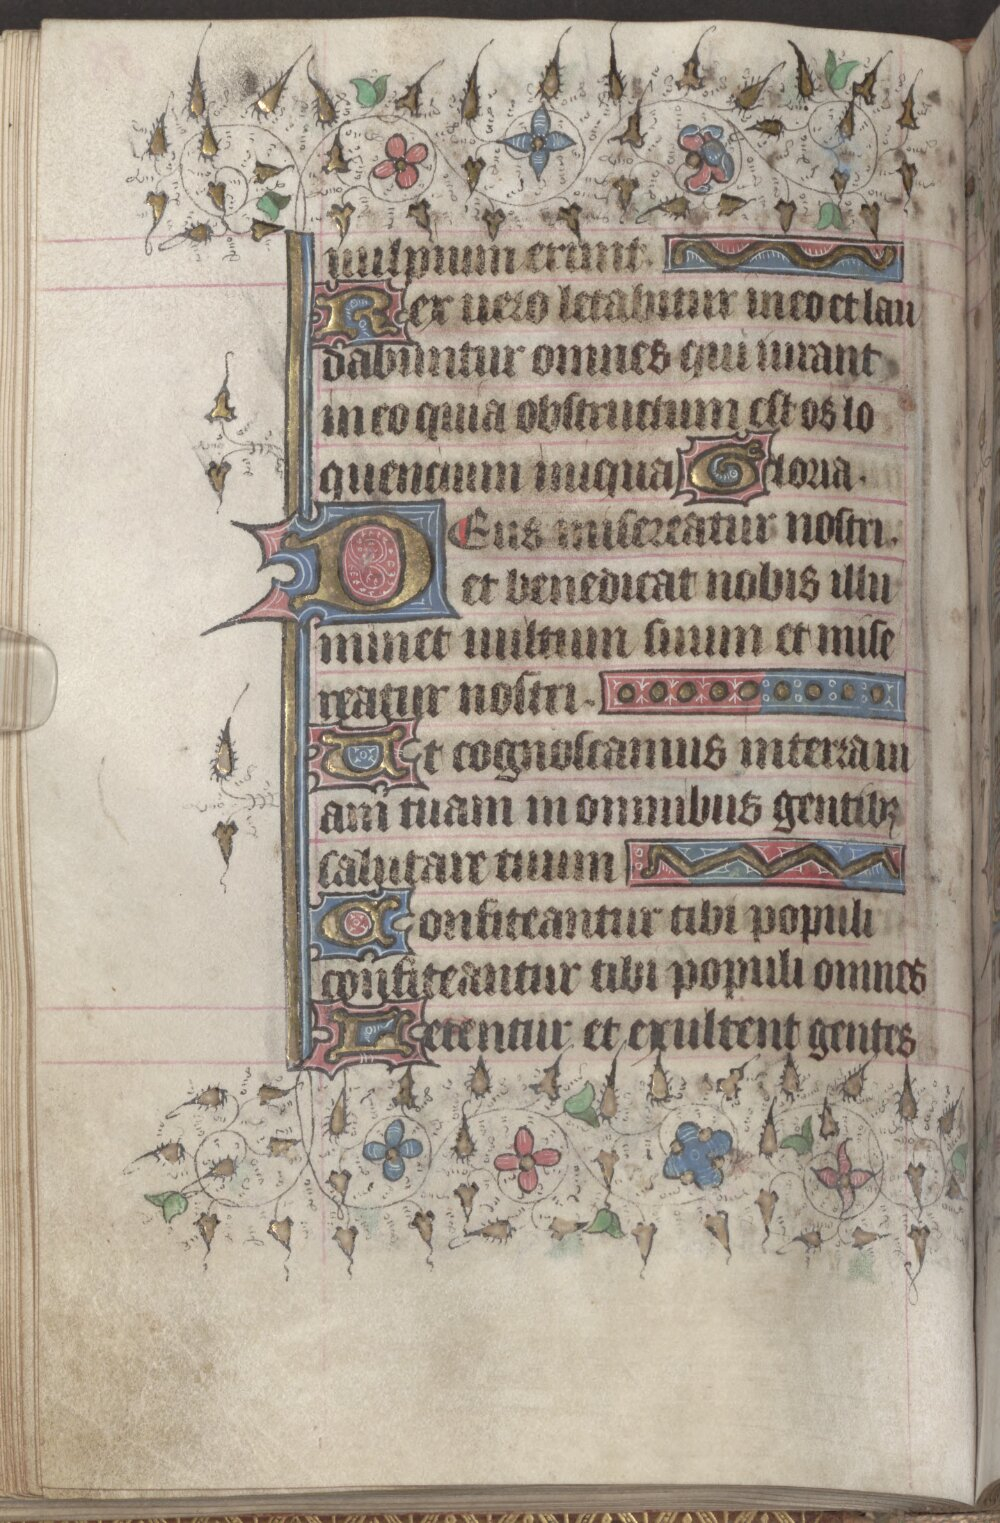 uulpium erunt.
Rex uero letabitur in eo et lau
dabuntur omnes qui iurant
in eo quia obstructum est os lo
quencium iniqua Gloria.
DEus misereatur nostri.
et benedicat nobis illu
minet uultum suum et mise
reatur nostri.
Ut cognoscamus in terra ui
am tuam in omnibus gentibꝫ
salutare tuum
Confiteantur tibi populi
confiteantur tibi populi omnes
Letentur et exultent gentes